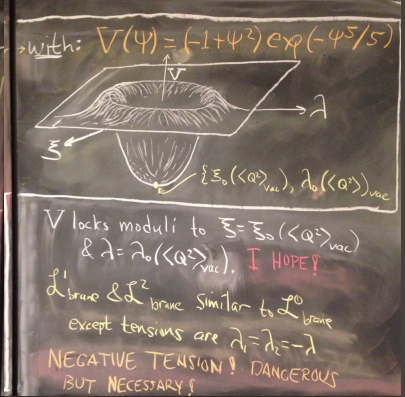 with: V(ψ) = (-1+ψ²) exp(-ψ⁵/5)
V
λ
ξ
{ξ₀(<Q²>vac), λ₀(<Q²>)vac
V locks moduli to ξ = ξ₀(<Q²>vac)
& λ = λ₀(<Q²>vac). I HOPE!
ℒ¹brane & ℒ²brane similar to ℒ⁰brane
except tensions are λ₁ = λ₂ = -λ
NEGATIVE TENSION! DANGEROUS
BUT NECESSARY!